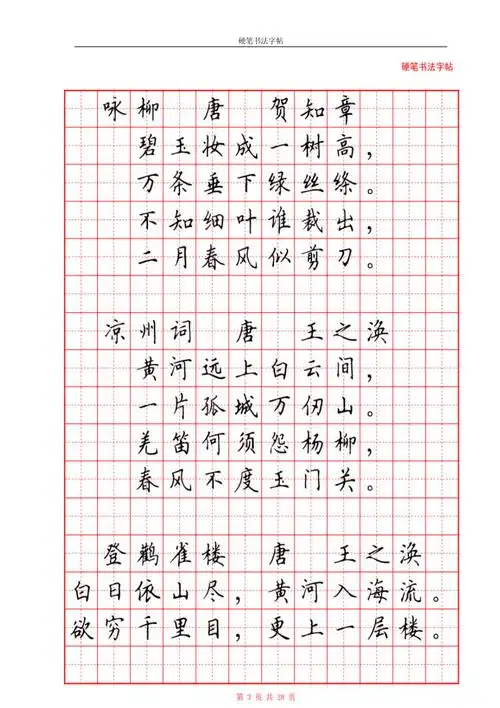 硬笔书法字帖
硬笔书法字帖
咏柳 唐 贺知章
碧玉妆成一树高，
万条垂下绿丝绦。
不知细叶谁裁出，
二月春风似剪刀。
凉州词 唐 王之涣
黄河远上白云间，
一片孤城万仞山。
羌笛何须怨杨柳，
春风不度玉门关。
登鹳雀楼 唐 王之涣
白日依山尽，黄河入海流。
欲穷千里目，更上一层楼。
第 3 页 共 28 页